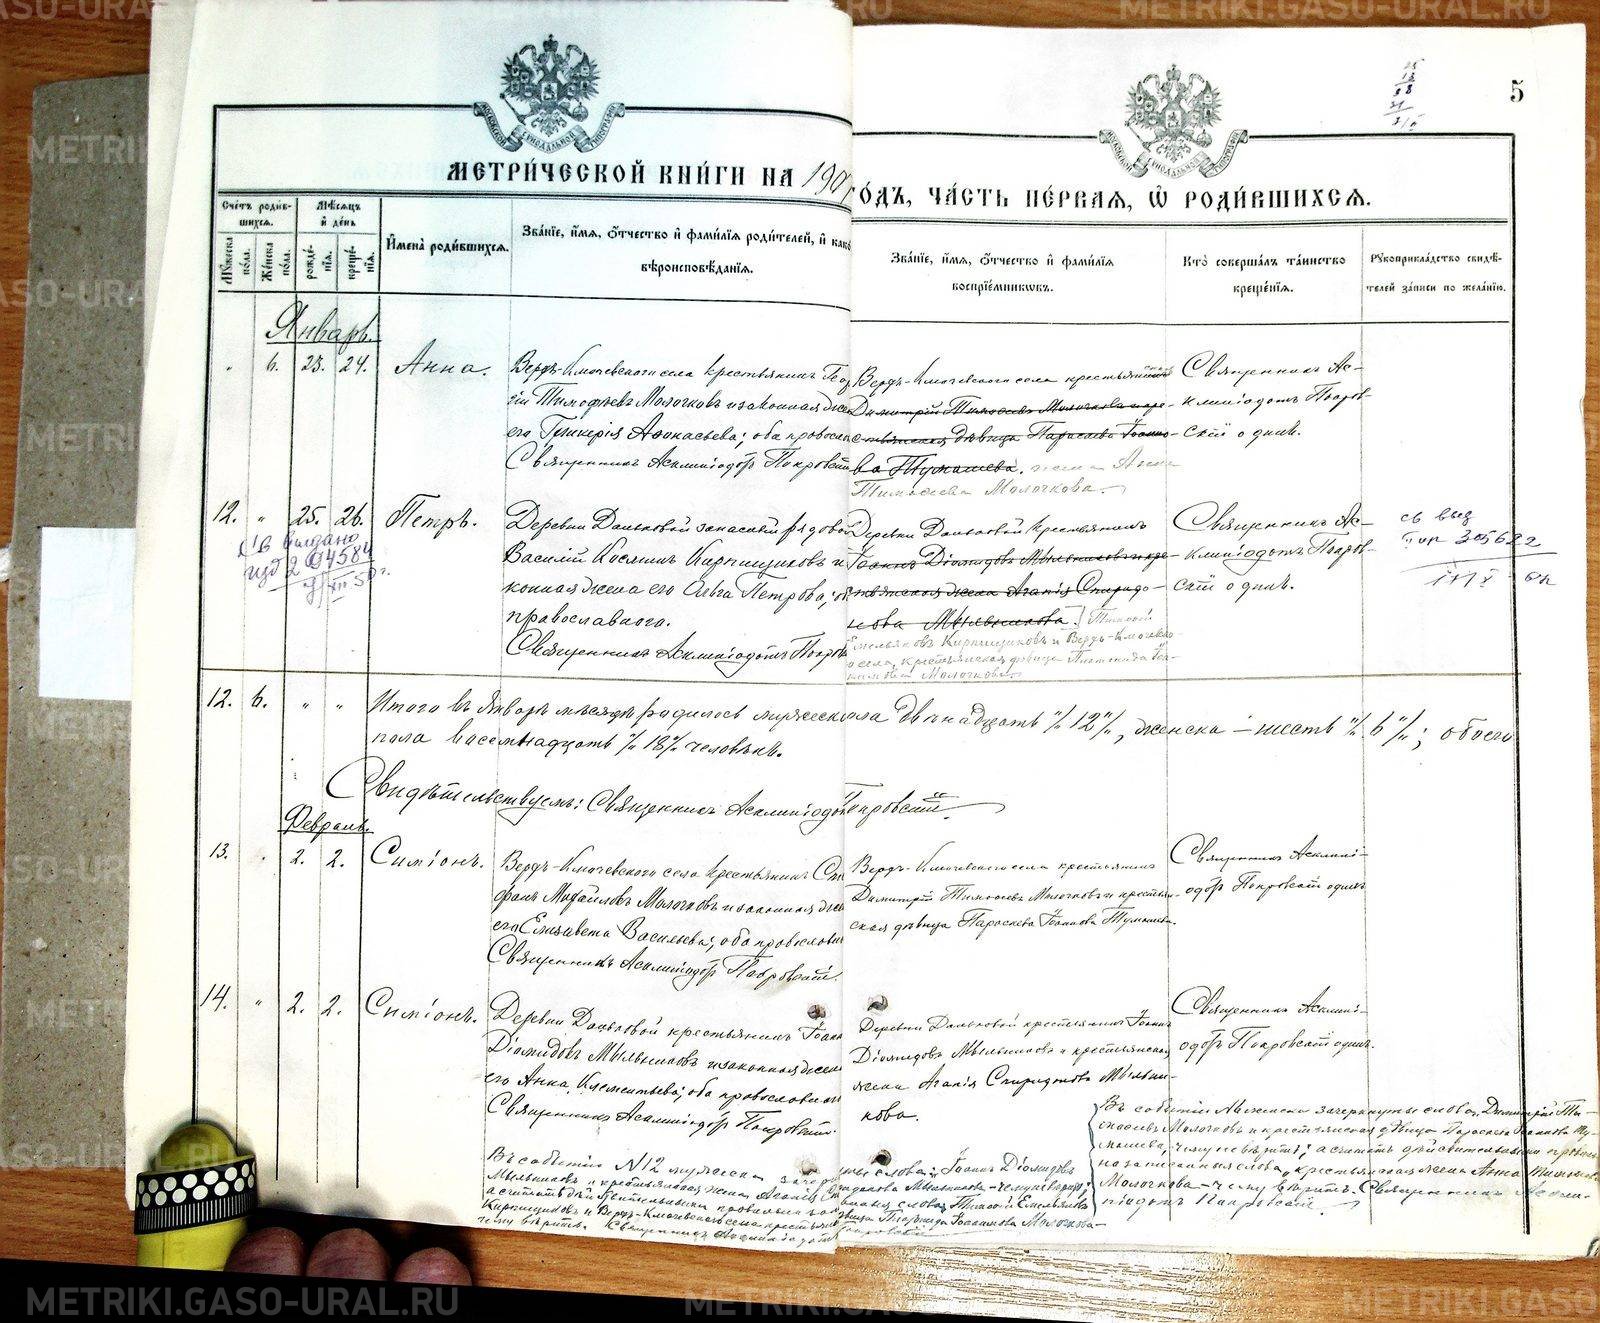 METRIKI.GASO-URAL.RU
5
МЕТРИЧЕСКОЙ КНИГИ НА 190
ГОДЪ, ЧАСТЬ ПЕРВАЯ, Ѿ РОДИВШИХСЯ.
Счетъ родив-
шихся.
Мѣсяцъ
и день
Мужеска пола.
Женска пола.
рожденія.
крещенія.
Имена родившихся.
Званіе, имя, отчество и фамилія родителей, и како
вѣроисповѣданія.
Званіе, имя, отчество и фамилія
воспріемниковъ.
Кто совершалъ таинство
крещенія.
Рукоприкладство свидѣ-
телей записи по желанію.
Январь.
" 6. 23. 24. Анна.
Верхъ-Ключевского села крестьянинъ Геор
гій Тимофѣевъ Молочковъ и законная же
его Гликерія Аѳонасьева; оба правосла
Священникъ Асклипіодотъ Покровскій
Верхъ-Ключевского села крестьянинъ
Димитрій Тимофеевъ Молочковъ и кре-
стьянская дѣвица Параскева Іоанно-
ва Тумашева. жена Анна
Тимофеева Молочкова.
Священникъ Ас-
клипіодотъ Покров-
скій о днѣ.
12. " 25. 26. Петръ.
Деревни Даньковой запасный рядовой
Василій Космин Кирпищиковъ и
конная жена его Ольга Петрова;
православного.
Священникъ Асклипіодотъ Покров
Деревни Даньковой крестьянинъ
Іоаннъ Діомидовъ Мыльниковъ и кре-
стьянская жена Агапія Спиридо-
нова Мыльникова. Тимофей
Емельяновъ Кирпищиковъ и Верхъ-Ключевско-
го села, крестьянская дѣвица
Молочкова
Священникъ Ас-
клипіодотъ Покров-
скій о днѣ.
выдано
204584
св выд
305622
12. 6. " " Итого въ Январѣ мѣсяцѣ родилось мужеска пола двѣнадцать "/. 12 "/., женска – шесть "/. 6 "/.; обоего
пола восемнадцать "/. 18 "/. человѣкъ.
Свидѣтельствуемъ: Священникъ Асклипіодотъ Покровскій
Февраль.
13. " 2. 2. Симіонъ.
Верхъ-Ключевского села крестьянинъ Сте
фанъ Михайловъ Молочковъ и законная же
его Елизавета Васильева; оба православн
Священникъ Асклипіодотъ Покровскій.
Верхъ-Ключевского села крестьянинъ
Димитрій Тимофеевъ Молочковъ и крестьян-
ская дѣвица Параскева Іоаннова Тумашева.
Священникъ Асклипі-
одотъ Покровскій одинъ
14. " 2. 2. Симіонъ.
Деревни Даньковой крестьянинъ Іоанн
Діомидовъ Мыльниковъ и законная жена
его Анна Клементьева; оба православн
Священникъ Асклипіодотъ Покровскій.
Деревни Даньковой крестьянинъ Іоаннъ
Діомидовъ Мыльниковъ и крестьянская
жена Агапія Спиридонова Мыльни-
кова.
Священникъ Асклипі-
одотъ Покровскій одинъ.
Въ событіи № 12 мужеска зачеркнуты слова: Іоаннъ Діомидовъ
Мыльниковъ и крестьянская жена Агапія Спиридонова Мыльникова – чему вѣрить,
а считать дѣйствительными правильно записанныя слова, Тимофей Емельяновъ
Кирпищиковъ и Верхъ-Ключевского села крестьянская дѣвица Молочкова –
чему вѣрить. Священникъ Асклипіодотъ Покровскій
Въ событіи № 6 женска зачеркнуты слова Димитрій Ти-
мофеевъ Молочковъ и крестьянская дѣвица Параскева Іоаннова Ту-
машева, чему вѣрить; а считать дѣйствительными правильно
записанныя слова, крестьянская жена Анна Тимофеева
Молочкова – чему вѣрить. Священникъ Аскли-
піодотъ Покровскій.
METRIKI.GASO-URAL.RU